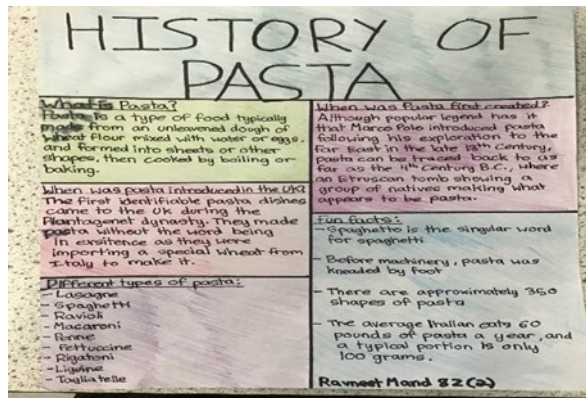 HISTORY OF
PASTA
What is Pasta?
Pasta is a type of food typically
made from an unleavened dough of
wheat flour mixed with water or eggs,
and formed into sheets or other
shapes, then cooked by boiling or
baking.
When was pasta introduced in the UK?
The first identifiable pasta dishes
came to the UK during the
Plantagenet dynasty. They made
pasta without the word being
in exsitence as they were
importing a special wheat from
Italy to make it.
Different types of pasta:
- Lasagne
- Spaghetti
- Ravioli
- Macaroni
- Penne
- Fettuccine
- Rigatoni
- Liguine
- Tagliatelle
When was Pasta first created?
Although popular legend has it
that Marco Polo introduced pasta
following his exploration to the
far East in the late 13th Century,
pasta can be traced back to as
far as the 4th Century B.C., where
an Etruscan tomb showing a
group of natives making what
appears to be pasta.
fun facts:
- Spaghetto is the singular word
for spaghetti
- Before machinery, pasta was
kneaded by foot
- There are approximately 350
shapes of pasta
- The average Italian eats 60
pounds of pasta a year, and
a typical portion is only
100 grams.
Ravneet Mand 8Z(2)